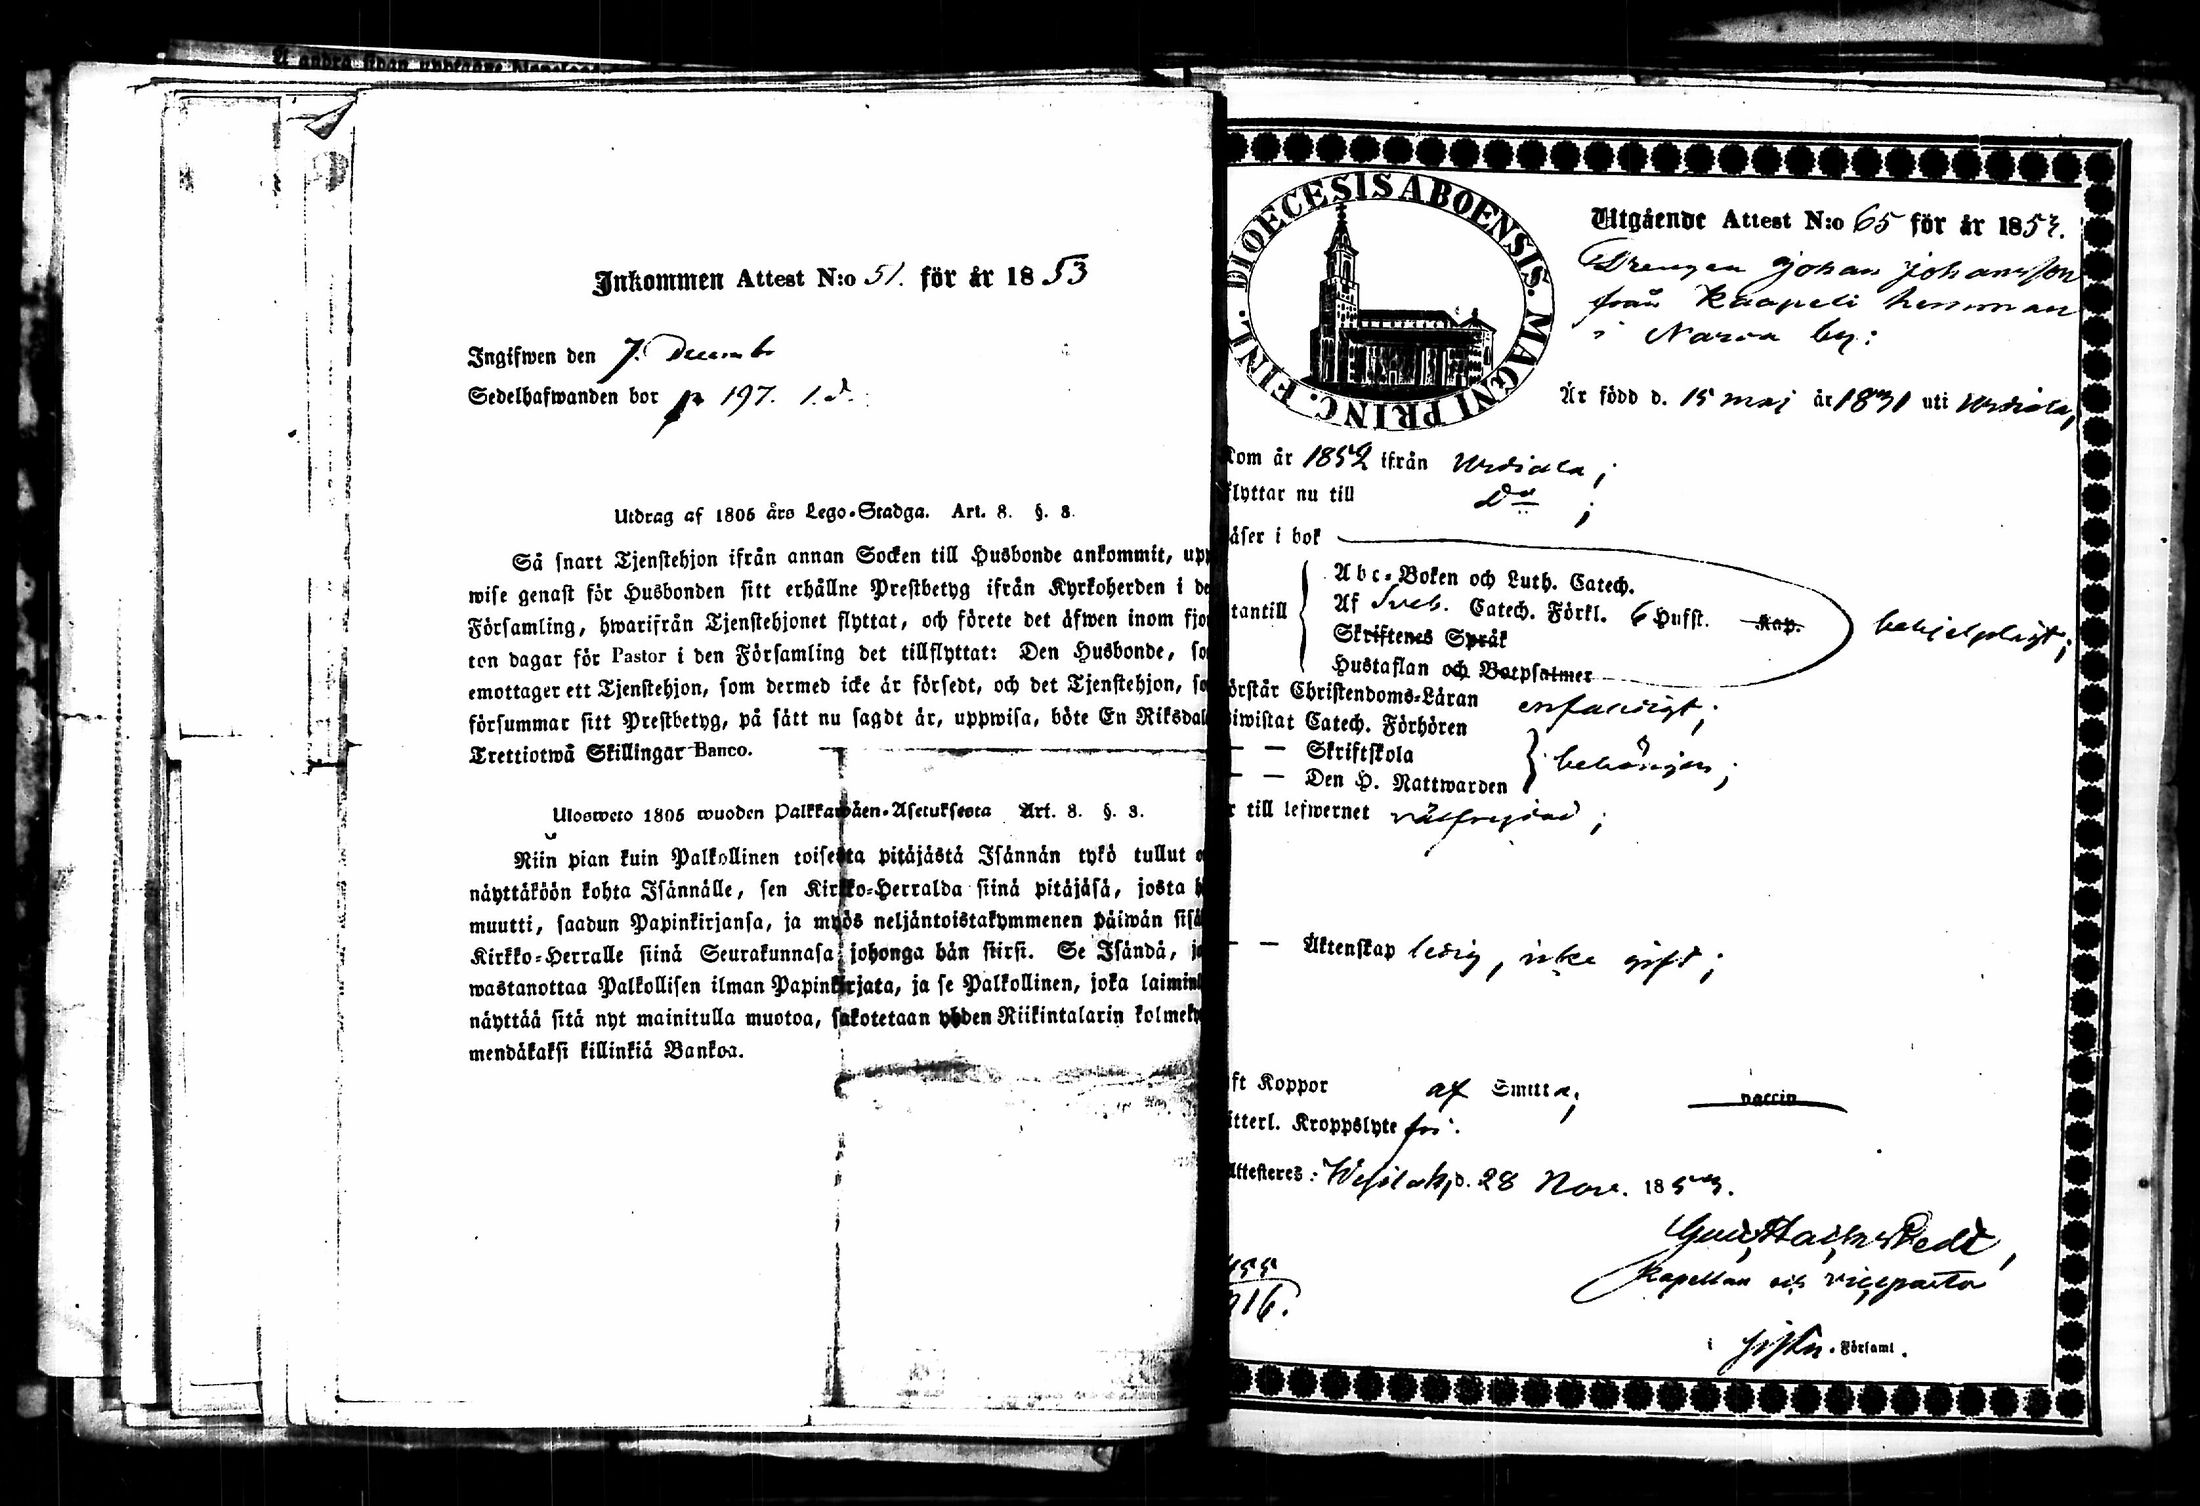 Inkommen Attest N:o 51. för år 1853
Ingifwen den 7. Decemb
Sedelhafwanden bor p 197. 1. d.
Utdrag af 1805 års Lego-Stadga. Art. 8. §. 3.
Så snart Tjenstehjon ifrån annan Socken till Husbonde ankommit, upp
wise genast för Husbonden sitt erhållne Prestbetyg ifrån Kyrkoherden i de
Församling, hwarifrån Tjenstehjonet flyttat, och förete det äfwen inom fjo
ton dagar för Pastor i den Församling det tillflyttat: Den Husbonde, so
emottager ett Tjenstehjon, som dermed icke är försedt, och det Tjenstehjon, so
försummar sitt Prestbetyg, på sätt nu sagdt är, uppwisa, böte En Riksdal
Trettiotwå Skillingar Banco.
Ulosweto 1805 wuoden Palkkawäen-Asetuksesta Art. 8. §. 3.
Niin pian kuin Palkollinen toisesta pitäjästä Isännän tykö tullut o
näyttäköön kohta Isännälle, sen Kirkko-Herralda siinä pitäjäsä, josta h
muutti, saadun Papinkirjansa, ja myös neljäntoistakymmenen päiwän sisä
Kirkko-Herralle siinä Seurakunnasa johonga hän siirsi. Se Isändä, jo
wastanottaa Palkollisen ilman Papinkirjata, ja se Palkollinen, joka laimin
näyttää sitä nyt mainitulla muotoa, sakotetaan yhden Riikintalarin kolmeky
mendäkaksi killinkiä Bankoa.
DIOECESIS ABOENSIS. MAGNI PRINC. FINL.
Utgående Attest N:o 65 för år 1853.
Drengen Johan Johansson
från Kaapeli hemman
i Narva by:
Är född d. 15 maj år 1831 uti Urdiala,
Kom år 1852 ifrån Urdiala;
flyttar nu till Do;
äser i bok
tantill
Abc-Boken och Luth. Catech.
Af Sveb. Catech. Förkl. 6 Hufst. Kap.
Skriftenes Språk
Hustaflan och Botpsalmer
behjelpligt;
örstår Christendoms-Läran enfaldigt;
iwistat Catech. Förhören
— — Skriftskola
— — Den H. Nattwarden
behörigen;
r till lefwernet välfrejdad;
— — Äktenskap ledig, icke gift;
ft Koppor af Smitta; vaccin
tterl. Kroppslyte fri.
Attesteres: Wesilaks, d. 28 Nov. 1853.
Kapellan och vicepastor
i Församl.
455
916.